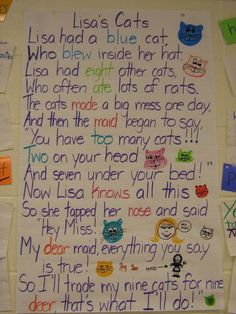 Lisa's Cats
Lisa had a blue cat,
Who blew inside her hat,
Lisa had eight other cats,
Who often ate lots of rats.
The cats made a big mess one day,
And then the maid began to say,
"You have too many cats!!!
Two on your head
And seven under your bed!"
Now Lisa knows all this
So she tapped her nose and said
"Hey Miss!
My dear maid, everything you say
is true!
MAD
So I'll trade my nine cats for nine
deer that's what I'll do!"